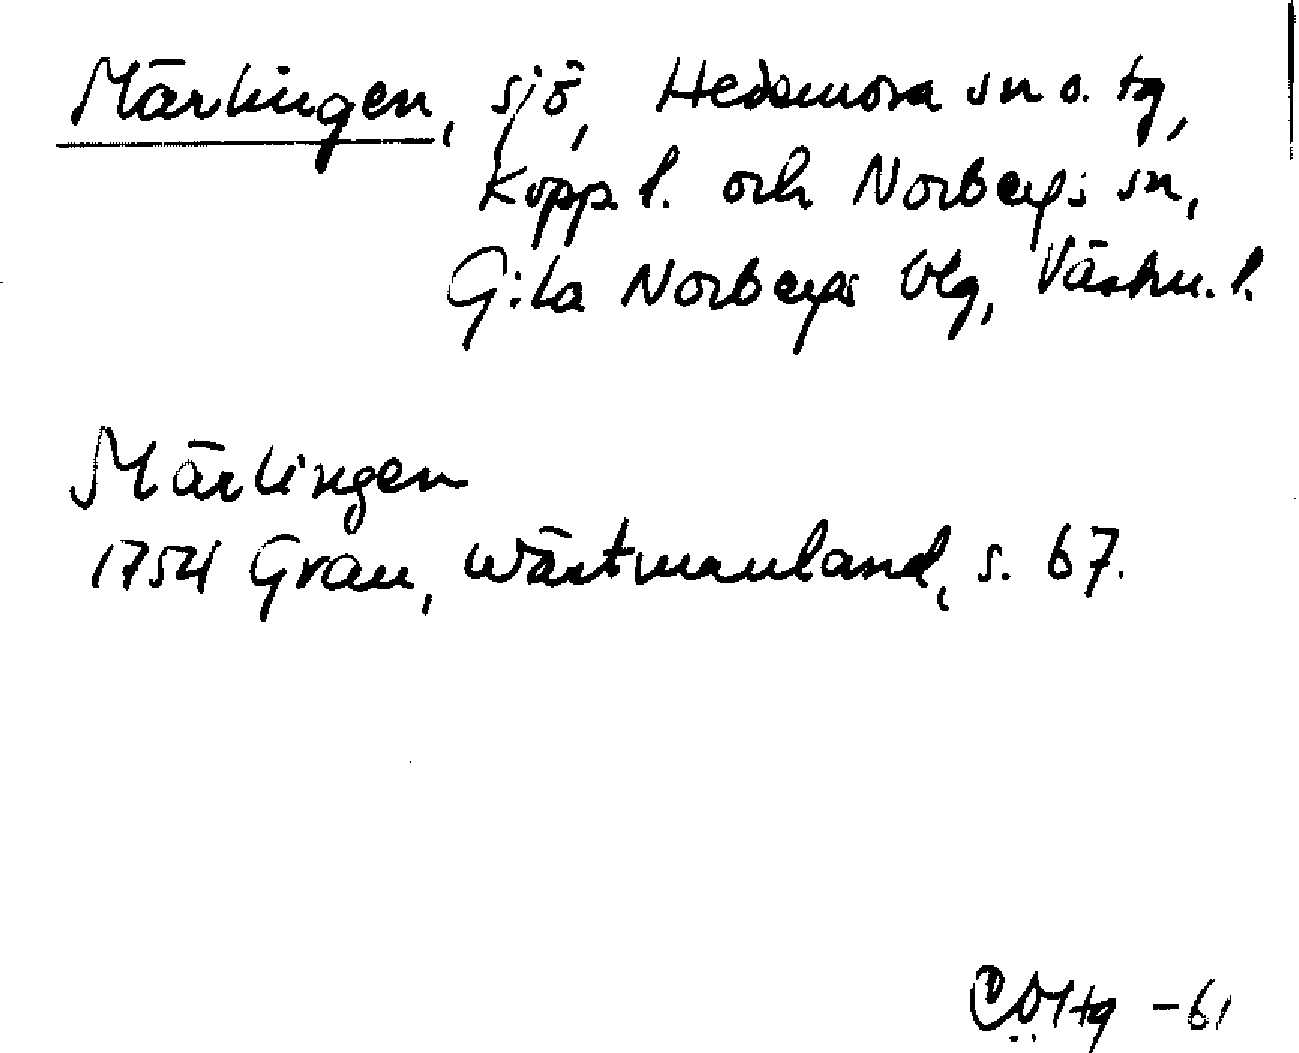 Märlingen, sjö, Hedemora sn o. tg,
Kopp. l. och Norbergs sn,
G:la Norbergs blg, Västm. l.
Märlingen
1754 Grau, Wästmanland, s. 67.
-61